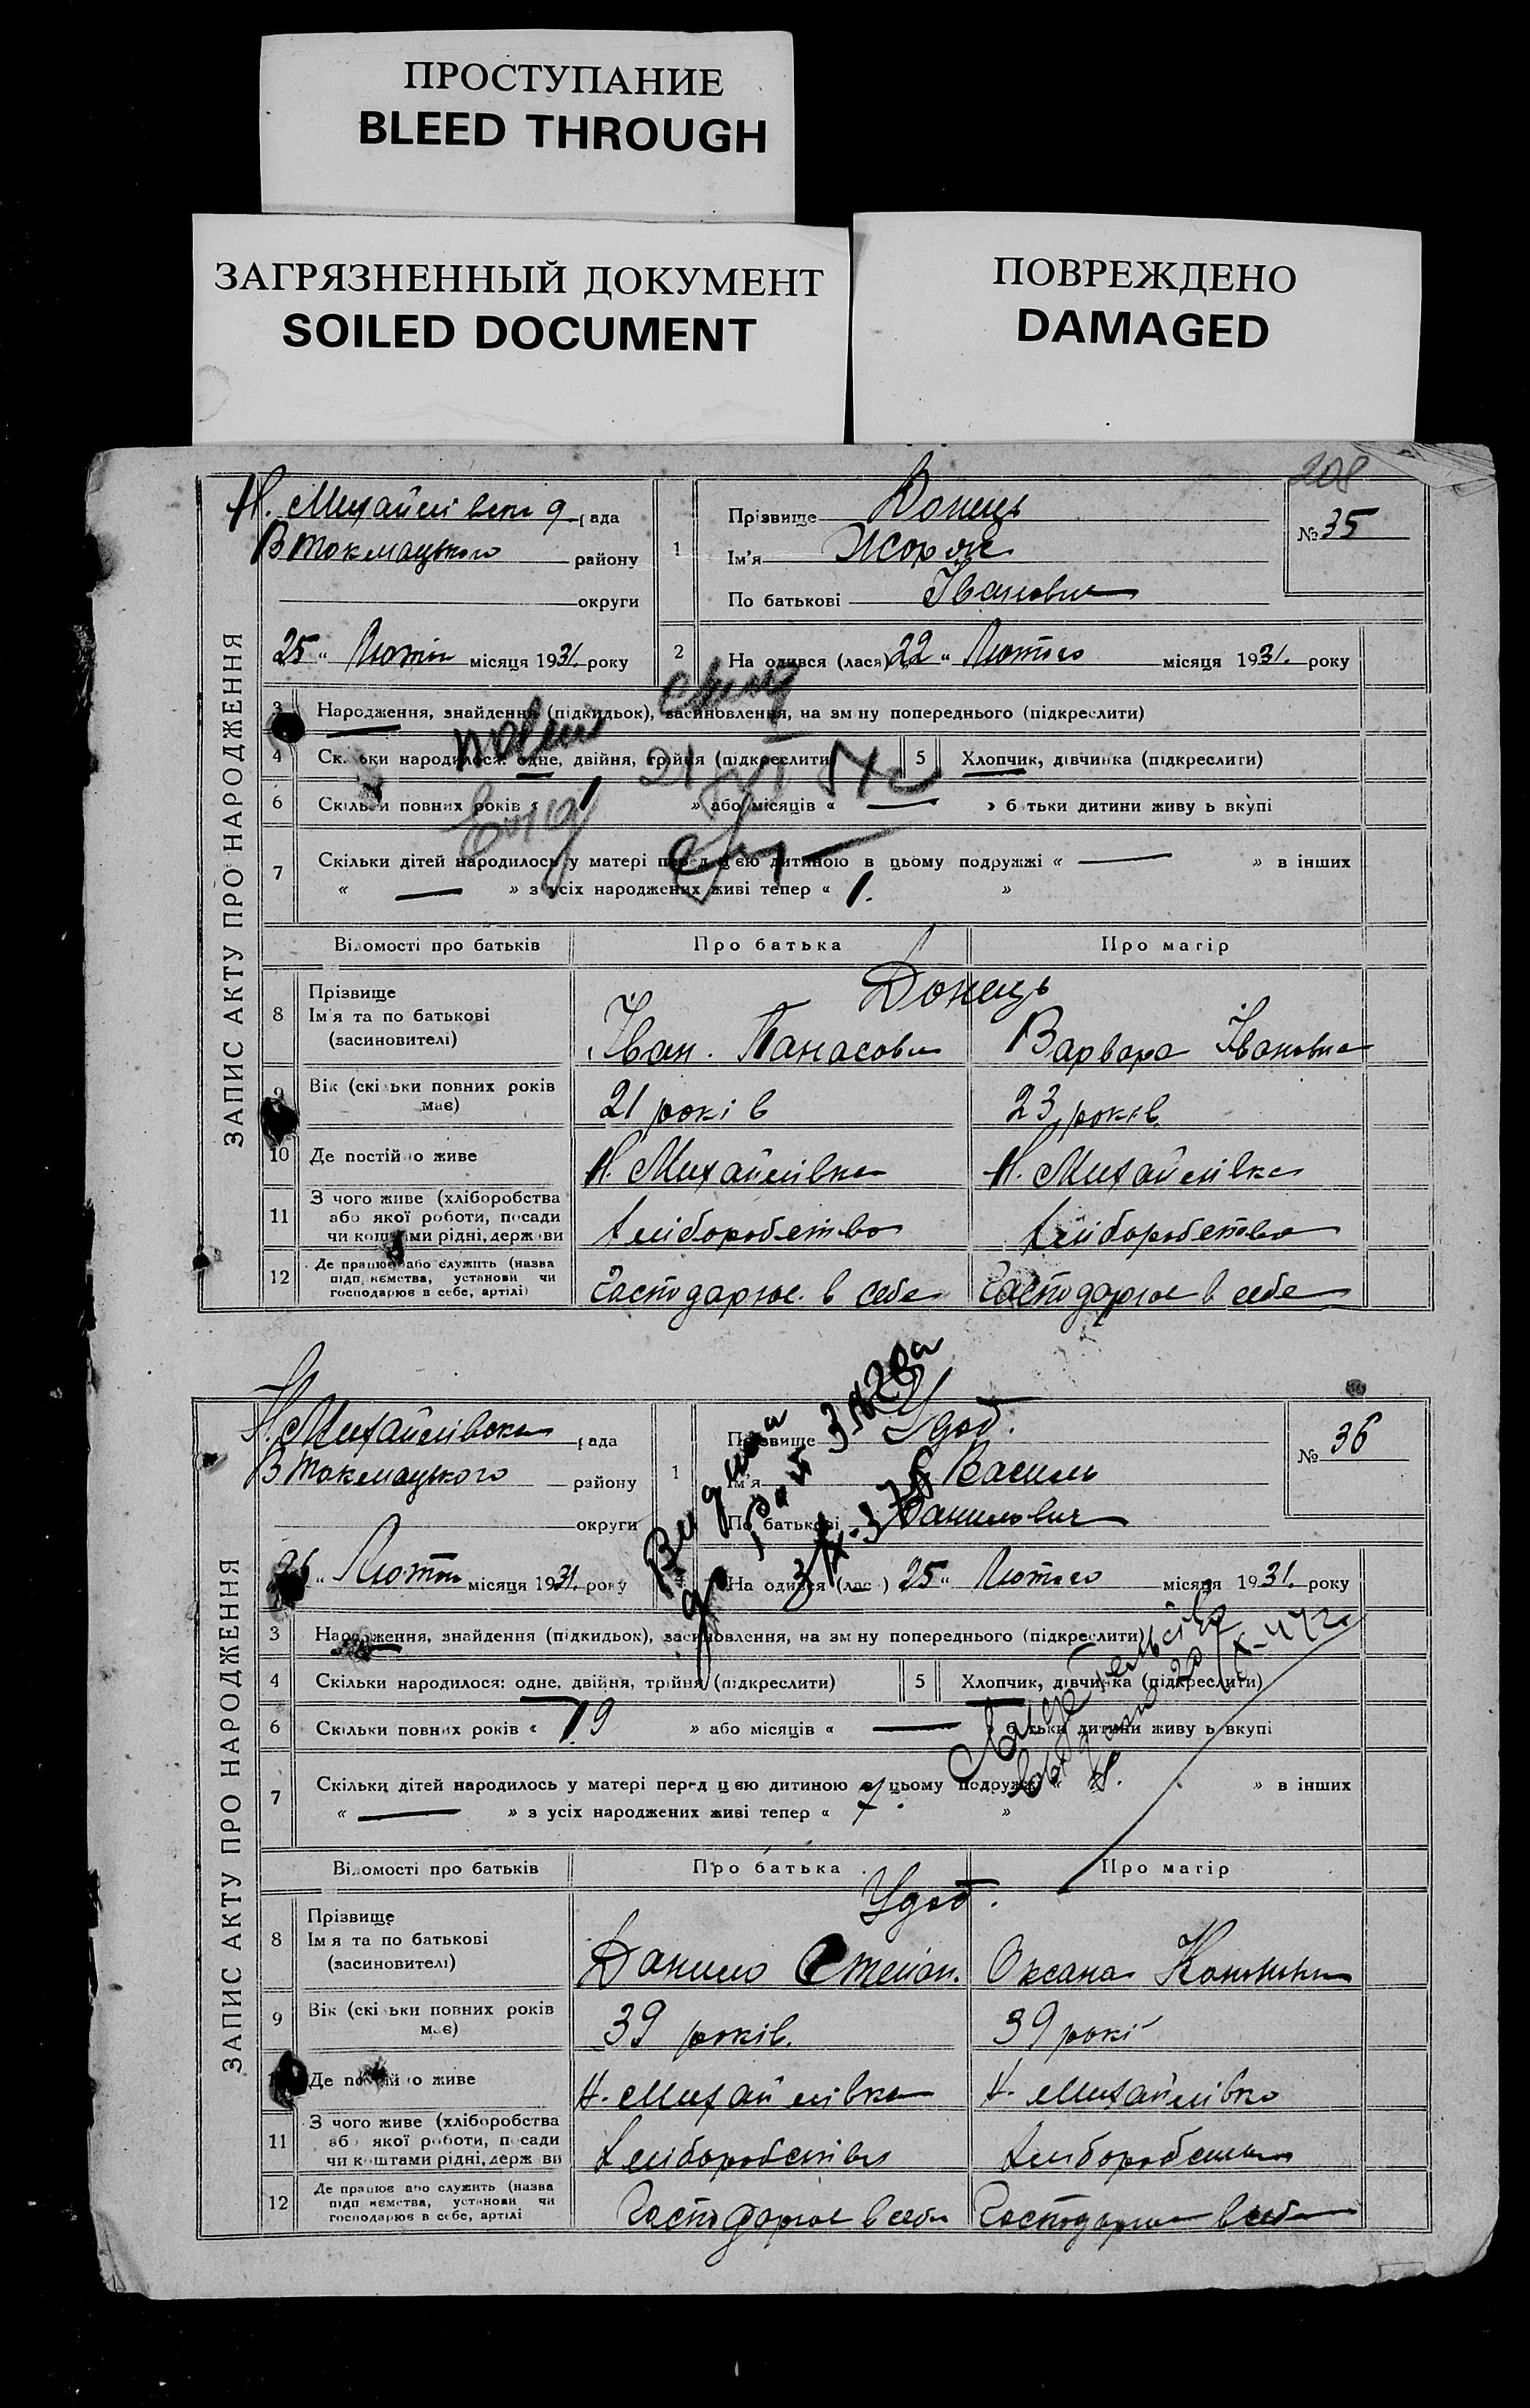 ПРОСТУПАНИЕ
BLEED THROUGH
ЗАГРЯЗНЕННЫЙ ДОКУМЕНТ
SOILED DOCUMENT
ПОВРЕЖДЕНО
DAMAGED
208
ЗАПИС АКТУ ПРО НАРОДЖЕННЯ
Н. Михайлівська рада
В Токмацького району
округи
25 " Лютня місяця 1931. року
1
Прізвище Донець
Ім'я Жорж
По батькові Іванович
№ 35
2 На одився (лася) 22 " Лютого місяця 1931. року
3 Народження, знайдення (підкидьок), засиновлення, на зм ну попереднього (підкреслити)
4 Ск. ьки народилося: одне, двійня, трійня (підкреслити)
5 Хлопчик, дівчинка (підкреслити)
6 Скільки повних років « 1 » або місяців « — » б тьки дитини живу ь вкупі
7 Скільки дітей народилось у матері перед ц ею дитиною в цьому подружжі « — » в інших
« — » з усіх народжених живі тепер « 1. »
Відомості про батьків Про батька Про матір
8 Прізвище
Ім'я та по батькові
(засиновителі)
Донець
Іван. Панасови Варвара Івановна
9 Вік (скі ьки повних років
має)
21 років 23 років.
10 Де постій о живе Н. Михайлівка Н. Михайлівка
11 З чого живе (хліборобства
або якої роботи, посади
чи коштами рідні, держ ви
Хліборобство Хліборобство
12 Де працює або служить (назва
підп ємства, установи чи
господарює в себе, артілі)
Господарює в себе Господарює в себе
ЗАПИС АКТУ ПРО НАРОДЖЕННЯ
Н. Михайлівска рада
В Токмацького району
округи
26 " Лютня місяця 1931. року
1
Прізвище Удод.
Ім'я Василь
По батькові Данилович
№ 36
На одився (лас ) 25 " Лютого місяця 1931. року
3 Народження, знайдення (підкидьок), засиновлення, на зм ну попереднього (підкреслити)
4 Скільки народилося: одне, двійня, трійня (підкреслити)
5 Хлопчик, дівчинка (підкреслити)
6 Скільки повних років « 19 » або місяців « — » б тьки дитини живу ь вкупі
7 Скільки дітей народилось у матері перед ц ею дитиною в цьому подружжі « » в інших
« — » з усіх народжених живі тепер « 7. »
Відомості про батьків Про батька Про матір
8 Прізвище
Ім я та по батькові
(засиновителі)
Удод.
Данило Степан. Оксана
9 Вік (скі ьки повних років
м є)
39 років. 39 рокі
Де постій о живе Н. Михайлівка Н. Михайлівка
11 З чого живе (хліборобства
аб якої роботи, посади
чи коштами рідні, держ ви
Хліборобство Хліборобство
12 Де працює або служить (назва
підп ємства, установи чи
господарює в себе, артілі
Господарює в себе Господарює в себе